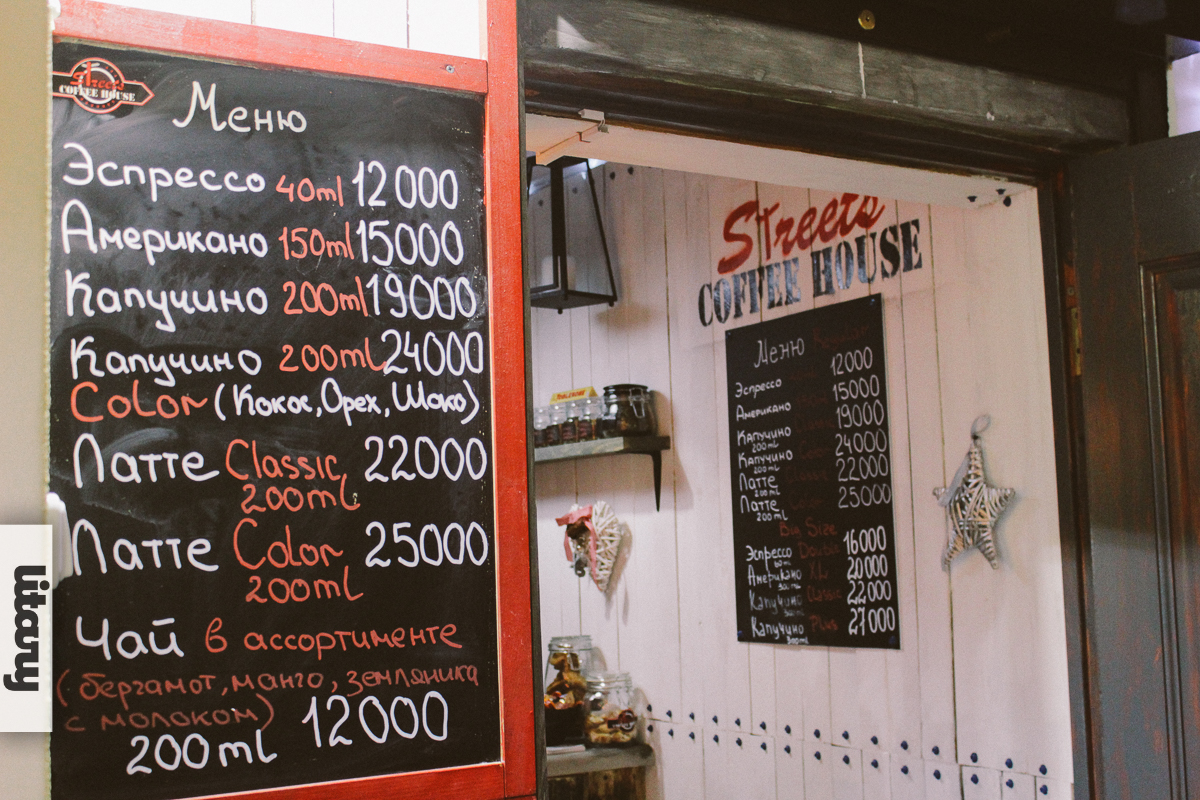 Streets
COFFEE HOUSE
Меню
Эспрессо 40ml 12000
Американо 150ml 15000
Капучино 200ml 19000
Капучино 200ml 24000
Color (Кокос, Орех, Шоко)
Латте Classic 22000
200ml
Латте Color 25000
200ml
Чай в ассортименте
(бергамот, манго, земляника
с молоком) 12000
200ml
Streets
COFFEE HOUSE
Меню
Эспрессо 12000
Американо 15000
Капучино 19000
200ml
Капучино 24000
200ml
Латте 22000
200ml
Латте 25000
200ml
Big Size
Эспрессо Double 16000
Американо XL 20000
Капучино Classic 22000
Капучино Plus 27000
300ml